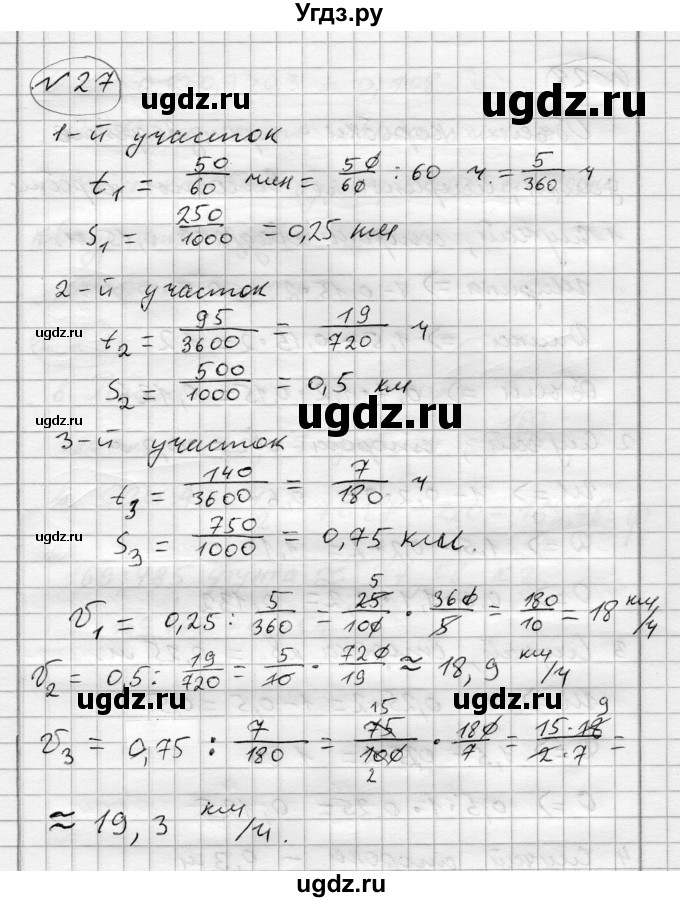 Угдз.ру
№27
ugdz.ru ugdz.ru
1-й участок
t₁ = 50/60 мин = 50/60 : 60 ч. = 5/360 ч
S₁ = 250/1000 = 0,25 км
2-й участок
ugdz.ru
t₂ = 95/3600 = 19/720 ч
S₂ = 500/1000 = 0,5 км
ugdz.ru
ugdz.ru
3-й участок
t₃ = 140/3600 = 7/180 ч
ugdz.ru
S₃ = 750/1000 = 0,75 км.
V₁ = 0,25 : 5/360 = 25/100 · 360/5 = 180/10 = 18 км/ч
5
V₂ = 0,5 : 19/720 = 5/10 · 720/19 ≈ 18,9 км/ч
ugdz.ru ugdz.ru
15 9
V₃ = 0,75 : 7/180 = 75/100 · 180/7 = 15·18/2·7 =
2
≈ 19,3 км/ч.
ugdz.ru
ugdz.ru